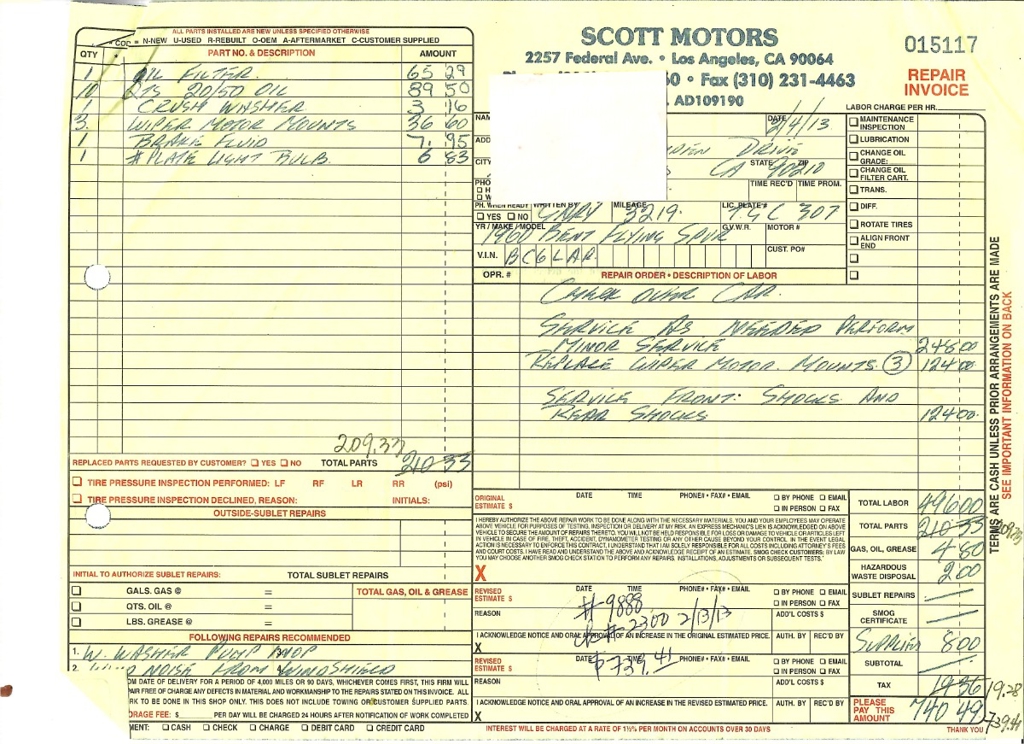 ALL PARTS INSTALLED ARE NEW UNLESS SPECIFIED OTHERWISE
N-NEW U-USED R-REBUILT O-OEM A-AFTERMARKET C-CUSTOMER SUPPLIED
QTY PART NO. & DESCRIPTION AMOUNT
1 OIL FILTER 65 29
10 QTS 20/50 OIL 89 50
1 CRUSH WASHER 3 16
3 WIPER MOTOR MOUNTS 36 60
1 BRAKE FLUID 7.95
1 # PLATE LIGHT BULB 6 83
209.33
REPLACED PARTS REQUESTED BY CUSTOMER? YES NO TOTAL PARTS 210 33
TIRE PRESSURE INSPECTION PERFORMED: LF RF LR RR (psi)
TIRE PRESSURE INSPECTION DECLINED, REASON: INITIALS:
OUTSIDE-SUBLET REPAIRS
INITIAL TO AUTHORIZE SUBLET REPAIRS: TOTAL SUBLET REPAIRS
GALS. GAS @ = TOTAL GAS, OIL & GREASE
QTS. OIL @ =
LBS. GREASE @ =
FOLLOWING REPAIRS RECOMMENDED
1. W. WASHER PUMP INOP
2. NOISE FROM WINDSHIELD
OM DATE OF DELIVERY FOR A PERIOD OF 4,000 MILES OR 90 DAYS, WHICHEVER COMES FIRST, THIS FIRM WILL
PAIR FREE OF CHARGE ANY DEFECTS IN MATERIAL AND WORKMANSHIP TO THE REPAIRS STATED ON THIS INVOICE. ALL
RK TO BE DONE IN THIS SHOP ONLY. THIS DOES NOT INCLUDE TOWING OR CUSTOMER SUPPLIED PARTS.
ORAGE FEE: $ PER DAY WILL BE CHARGED 24 HOURS AFTER NOTIFICATION OF WORK COMPLETED
MENT: CASH CHECK CHARGE DEBIT CARD CREDIT CARD
SCOTT MOTORS
2257 Federal Ave. • Los Angeles, CA 90064
60 • Fax (310) 231-4463
AD109190
015117
REPAIR
INVOICE
LABOR CHARGE PER HR.
NAM DATE 2/4/13
ADD DRIVE
CITY STATE CA ZIP 90210
PHO TIME REC'D TIME PROM.
PH. WHEN READY YES NO WRITTEN BY GARY MILEAGE 3219 LIC. PLATE # TGC 307
YR / MAKE / MODEL 1960 BENT FLYING SPUR G.V.W.R. MOTOR #
V.I.N. BC6LAR CUST. PO#
MAINTENANCE INSPECTION
LUBRICATION
CHANGE OIL GRADE:
CHANGE OIL FILTER CART.
TRANS.
DIFF.
ROTATE TIRES
ALIGN FRONT END
OPR. # REPAIR ORDER • DESCRIPTION OF LABOR
CHECK OVER CAR.
SERVICE AS NEEDED PERFORM
MINOR SERVICE 248 00
REPLACE WIPER MOTOR MOUNTS (3) 124 00
SERVICE FRONT: SHOCKS AND
REAR SHOCKS 124 00
TERMS ARE CASH UNLESS PRIOR ARRANGEMENTS ARE MADE
SEE IMPORTANT INFORMATION ON BACK
ORIGINAL ESTIMATE $ DATE TIME PHONE# • FAX# • EMAIL BY PHONE EMAIL IN PERSON FAX
I HEREBY AUTHORIZE THE ABOVE REPAIR WORK TO BE DONE ALONG WITH THE NECESSARY MATERIALS. YOU AND YOUR EMPLOYEES MAY OPERATE
ABOVE VEHICLE FOR PURPOSES OF TESTING, INSPECTION OR DELIVERY AT MY RISK. AN EXPRESS MECHANIC'S LIEN IS ACKNOWLEDGED ON ABOVE
VEHICLE TO SECURE THE AMOUNT OF REPAIRS THERETO. YOU WILL NOT BE HELD RESPONSIBLE FOR LOSS OR DAMAGE TO VEHICLE OR ARTICLES LEFT
IN VEHICLE IN CASE OF FIRE, THEFT, ACCIDENT, DYNAMOMETER TESTING OR ANY OTHER CAUSE BEYOND YOUR CONTROL. IN THE EVENT LEGAL
ACTION IS NECESSARY TO ENFORCE THIS CONTRACT, I UNDERSTAND THAT I AM SOLELY RESPONSIBLE FOR ALL COSTS INCLUDING ATTORNEY'S FEES
AND COURT COSTS. I HAVE READ AND UNDERSTAND THE ABOVE AND ACKNOWLEDGE RECEIPT OF AN ESTIMATE. SMOG CHECK CUSTOMERS: BY LAW
YOU MAY CHOOSE ANOTHER SMOG CHECK STATION TO PERFORM ANY REPAIRS, INSTALLATIONS, ADJUSTMENTS OR SUBSEQUENT TESTS.
X
REVISED ESTIMATE $ DATE TIME PHONE# • FAX# • EMAIL BY PHONE EMAIL IN PERSON FAX
# 9888
REASON ADD'L COSTS $
ck# 2300 2/13/13
I ACKNOWLEDGE NOTICE AND ORAL APPROVAL OF AN INCREASE IN THE ORIGINAL ESTIMATED PRICE. AUTH. BY REC'D BY
X
$739.41
REVISED ESTIMATE $ DATE TIME PHONE# • FAX# • EMAIL BY PHONE EMAIL IN PERSON FAX
REASON ADD'L COSTS $
I ACKNOWLEDGE NOTICE AND ORAL APPROVAL OF AN INCREASE IN THE REVISED ESTIMATED PRICE. AUTH. BY REC'D BY
X
INTEREST WILL BE CHARGED AT A RATE OF 1½% PER MONTH ON ACCOUNTS OVER 30 DAYS
TOTAL LABOR 496 00
TOTAL PARTS 210 33 209.33
GAS, OIL, GREASE 4 80
HAZARDOUS WASTE DISPOSAL 2 00
SUBLET REPAIRS —
SMOG CERTIFICATE —
SUPPLIES 8 00
SUBTOTAL —
TAX 19 36 19.28
PLEASE PAY THIS AMOUNT 740 49 739.41
THANK YOU